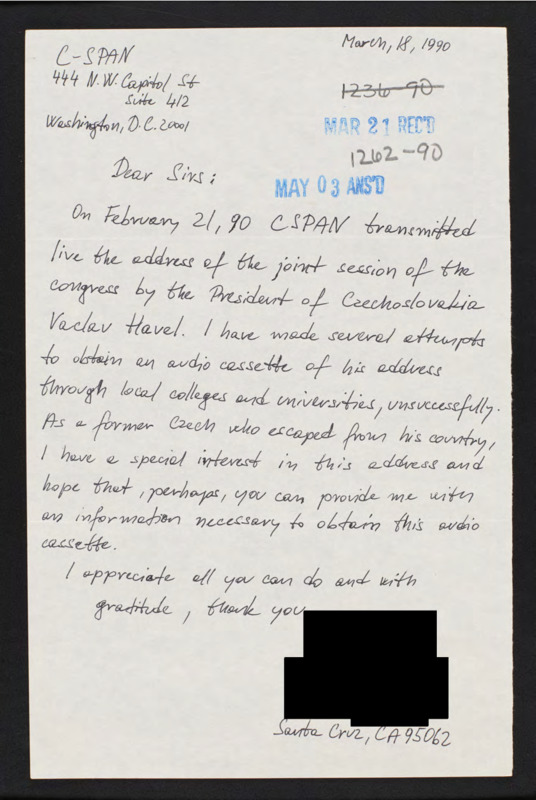 C-SPAN
444 N.W. Capitol St
Suite 412
Washington, D.C. 20001
March, 18, 1990
1236-90
MAR 21 REC'D
1262-90
MAY 03 ANS'D
Dear Sirs:
On February 21, 90 CSPAN transmitted
live the address of the joint session of the
congress by the President of Czechoslovakia
Vaclav Havel. I have made several attempts
to obtain an audio cassette of his address
through local colleges and universities, unsuccessfully.
As a former Czech who escaped from his country,
I have a special interest in this address and
hope that, perhaps, you can provide me with
an information necessary to obtain this audio
cassette.
I appreciate all you can do and with
gratitude, thank you
Santa Cruz, CA 95062